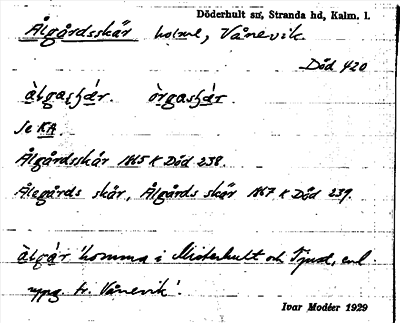 Döderhult sn, Stranda hd, Kalm. l.
Ålgårdsskär holme, Vånevik
Död 420
àlgaʂʃǽr. òrgaʂʃár.
Se KA.
Ålgårdsskär 1865 K Död 238.
Ålegårds skär, Ålgårds skär 1867 K Död 239.
àlgàr 'komma i Misterhult och Tjust, enl
uppg. fr. Vånevik'.
Ivar Modéer 1929